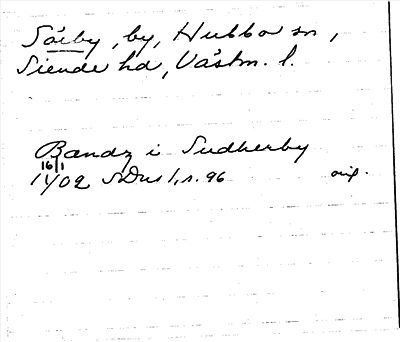 Sörby, by, Hubbo sn,
Siende hd, Västm. l.
Bandz i Sudherby
16/1
1402 SDns 1, s. 96 orig.